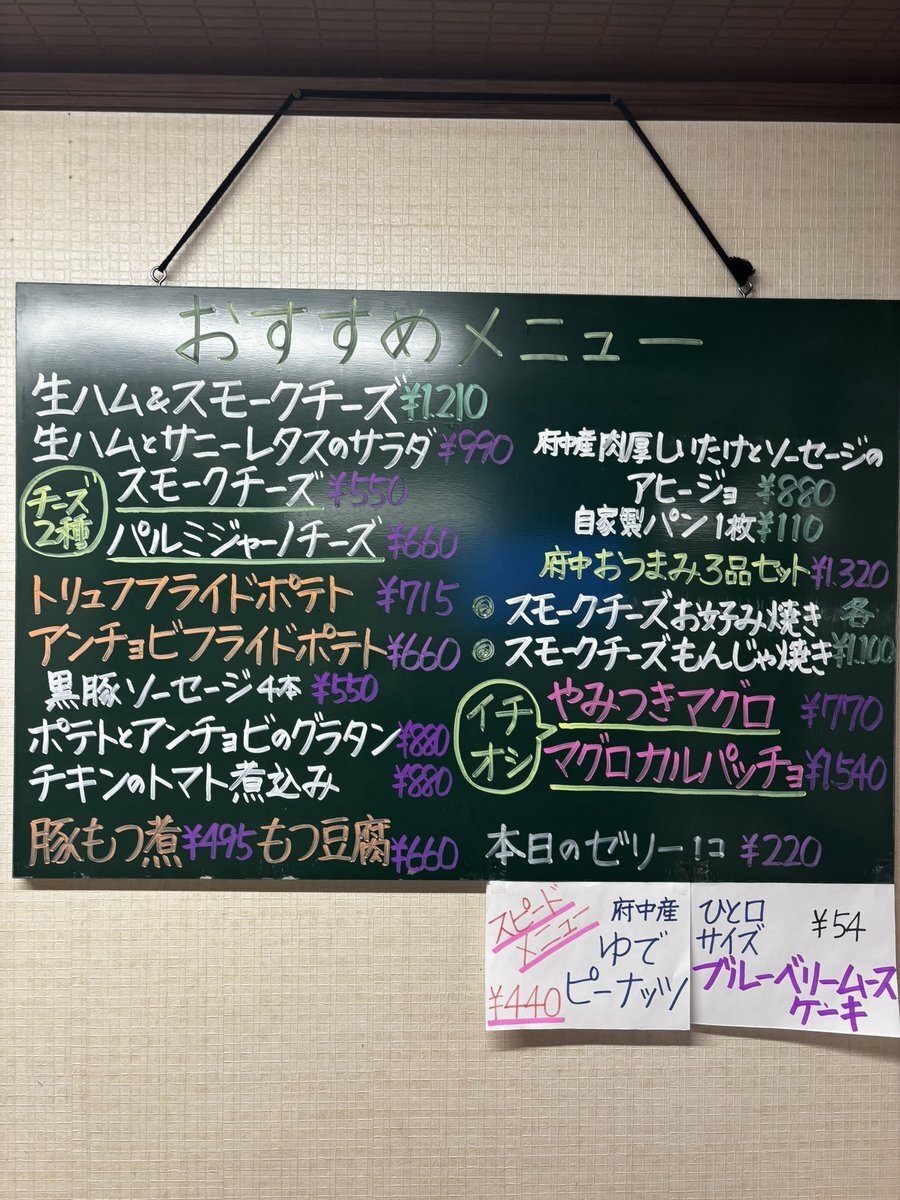 おすすめメニュー
生ハム&スモークチーズ ¥1.210
生ハムとサニーレタスのサラダ ¥990
チーズ2種
スモークチーズ ¥550
パルミジャーノチーズ ¥660
トリュフフライドポテト ¥715
アンチョビフライドポテト ¥660
黒豚ソーセージ4本 ¥550
ポテトとアンチョビのグラタン ¥880
チキンのトマト煮込み ¥880
豚もつ煮 ¥495 もつ豆腐 ¥660
府中産肉厚しいたけとソーセージの
アヒージョ ¥880
自家製パン1枚 ¥110
府中おつまみ3品セット ¥1.320
スモークチーズお好み焼き 各
スモークチーズもんじゃ焼き ¥1.100
イチオシ
やみつきマグロ ¥770
マグロカルパッチョ ¥1.540
本日のゼリー1コ ¥220
スピード
メニュー
府中産
ゆで
ピーナッツ
¥440
ひと口
サイズ ¥54
ブルーベリームース
ケーキ